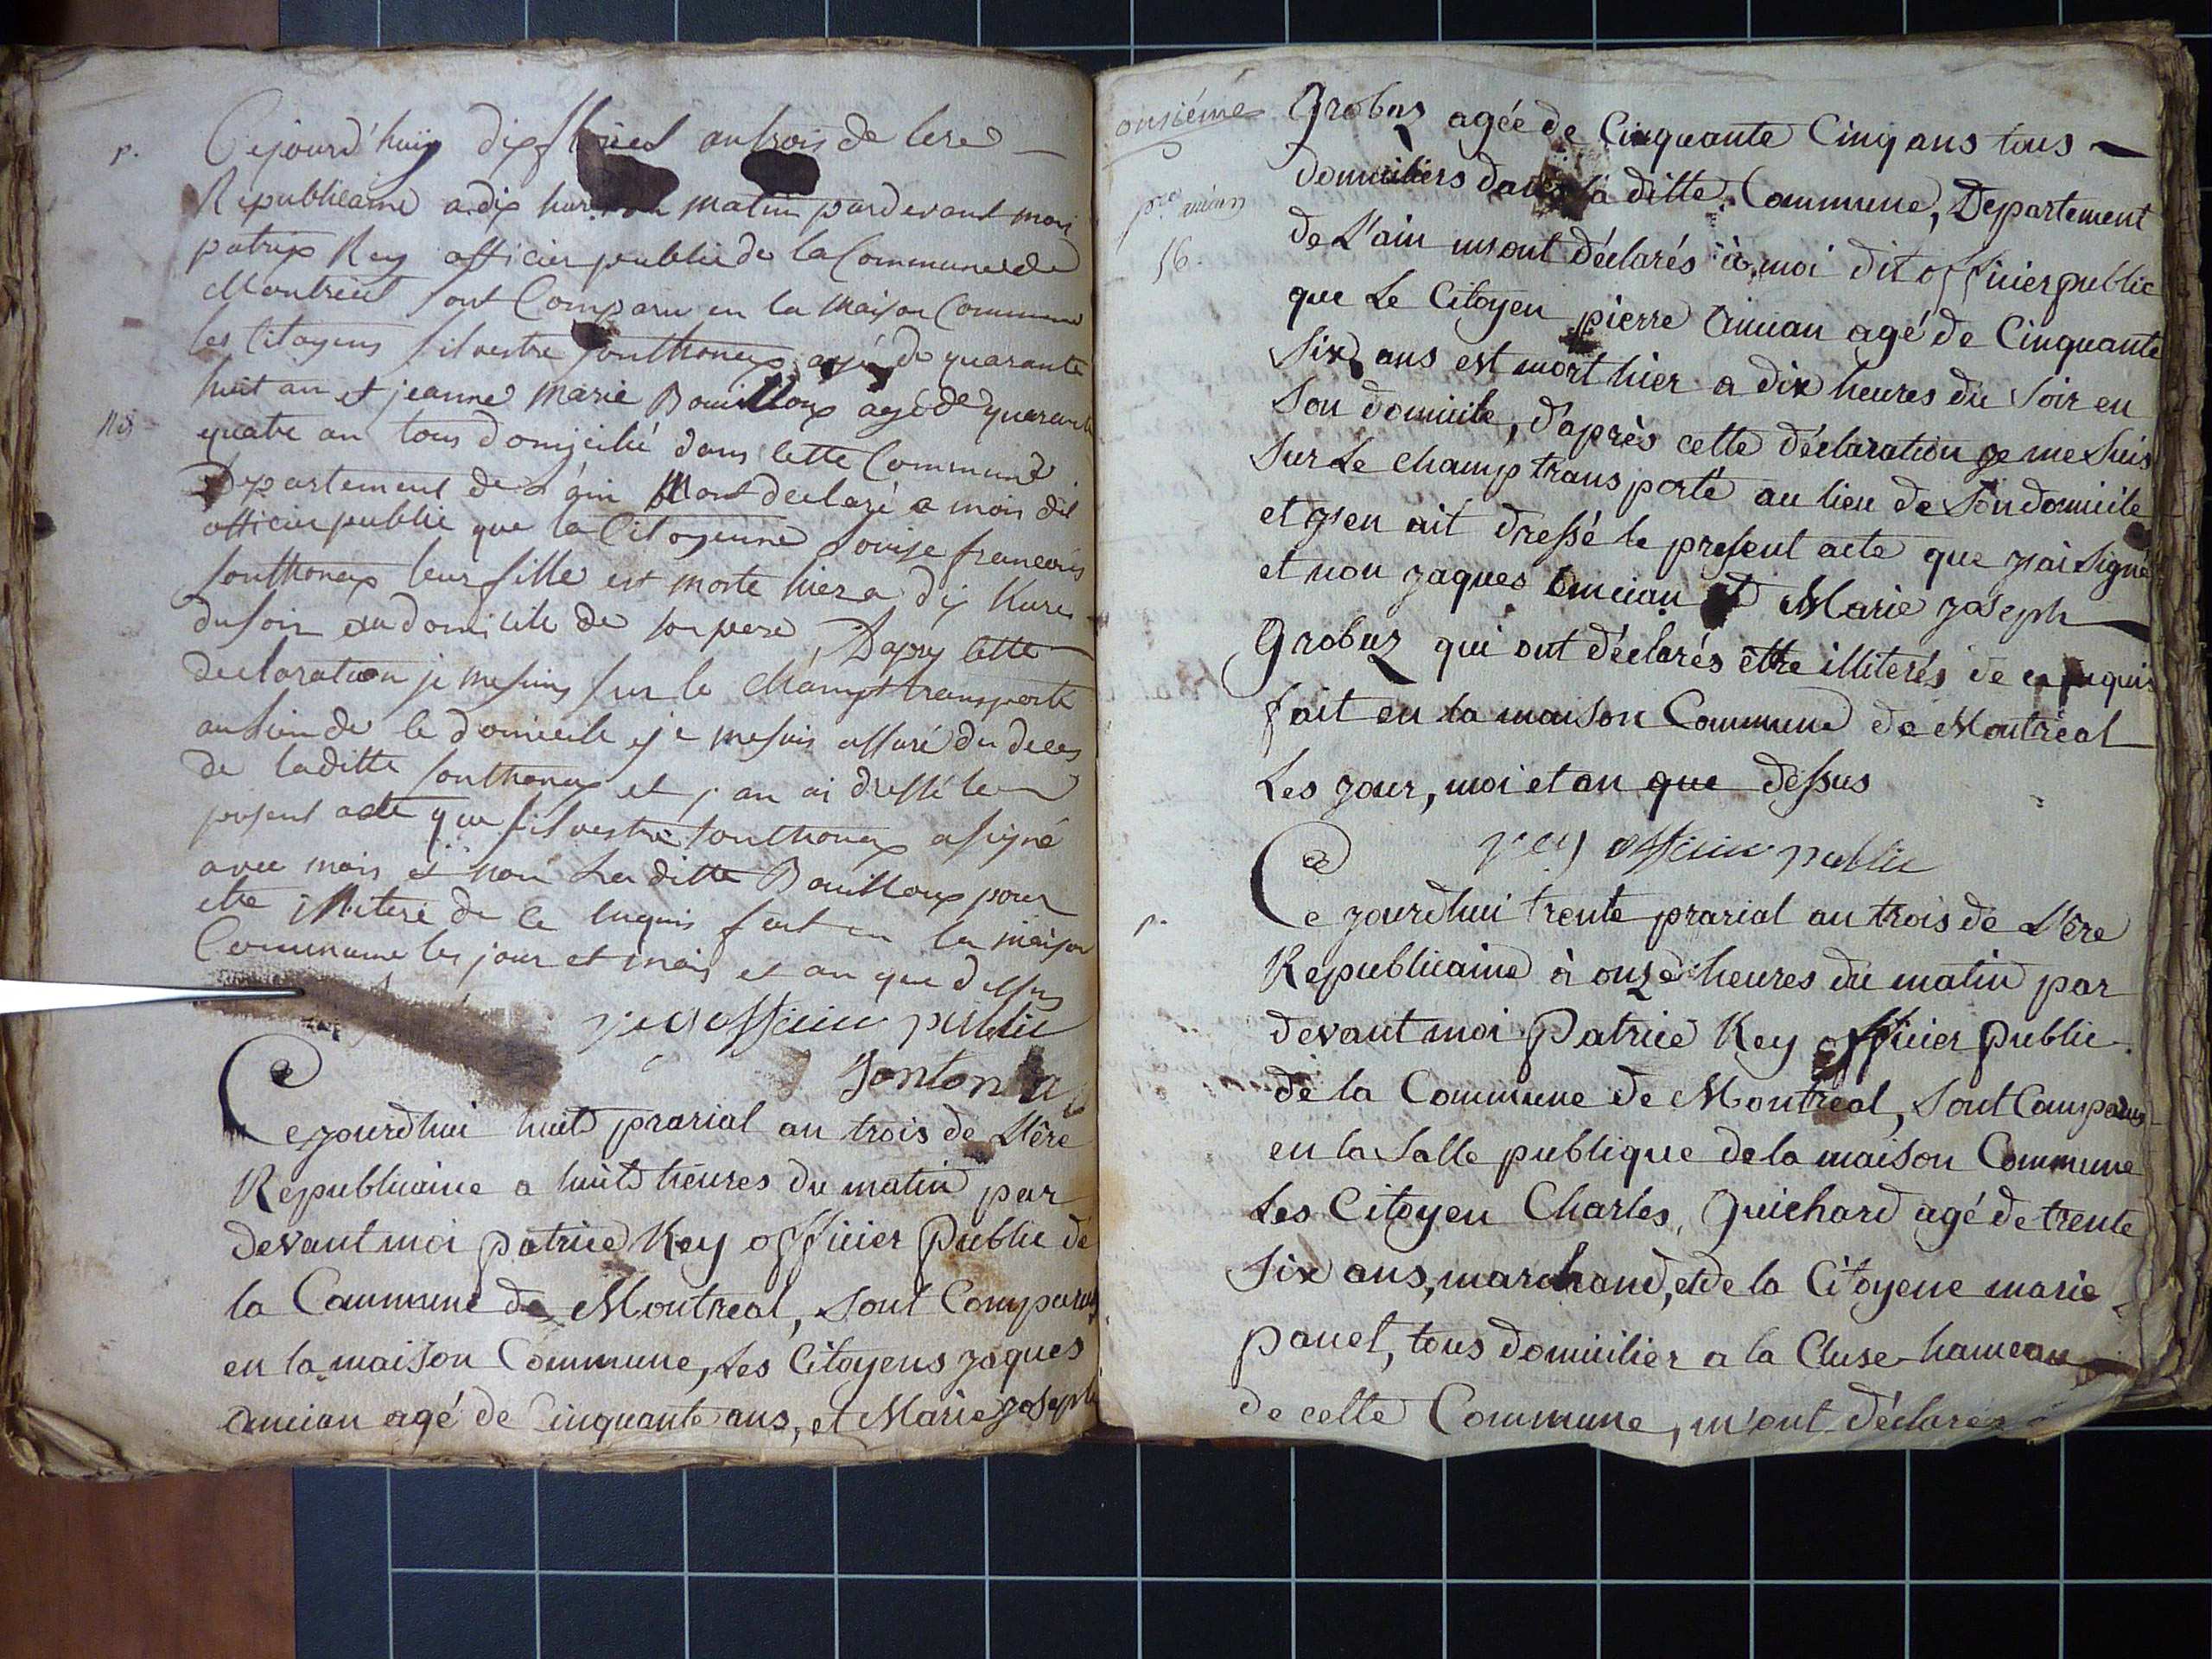 p.
Cejourd'huiy dix floréel an trois de lere
Republicaine a dix hur matin pardevant moi
patrix Rey officier public de la Commune de
Montreal sont Comparu en la maison Commune
les Citoyens silvestre sonthonax agé de quarante
huit an et jeanne marie Bouilloux agé de quarante
quatre an tous domicilié dans cette Commune
Departement de l'ain mont declaré a moi dit
officier public que la Citoyenne Louise francoise
sonthonax leur fille est morte hier a dix hures
du soir au domicile de son pere, Dapry cette
declaration je me suis sur le champt transporté
au lieu de le domicile je me suis assuré du deces
de laditte sonthonax et j an ai dressé le
present acte que silvestre sonthonax a signé
avec mois et non la ditte Bouilloux pour
etre illiteré de ce enquis fait en la maison
Commune les jour et mois et an que dessus
rey officier public
Sontona
Ce jourdhui huit prarial an trois de L'ère
Republicaine a huit heures du matin par
devant moi patrice Rey officier Public de
la Commune de Montreal, sont Comparus
en la maison Commune, les Citoyens jaques
ancian agé de Cinquante ans, et Marie joseph
onsiéme
p.re ancian
56.
Grobuz agée de Cinquante Cinq ans tous
domiciliers dans la ditte Commune, Departement
de L'ain m'ont déclarés à moi dit officier public
que Le Citoyen pierre Ancian agé de Cinquante
Six ans est mort hier a dix heures du Soir en
Son domicile, d'après cette déclaration je me Suis
Sur Le champ transporté au lieu de Son domicile
et j'en ait dressé le present acte que j'ai Signé
et non jaques ancian et Marie joseph
Grobuz qui ont déclarés être illiterés de ce enquis
fait en la maison Commune de Montréal
Les jour, moi et an que dessus
rey officier public
p.
Ce jourdhui trente prarial an trois de L'ère
Republicaine à onze heures du matin par
devant moi Patrice Rey officier Public
de la Commune de Montreal, sont Comparus
en la Salle publique de la maison Commune
Les Citoyen Charles Guichard agé de trente
Six ans, marchand, et de la Citoyene marie
panet, tous domicilier a la Cluse hameau
de cette Commune, m'ont déclarés à